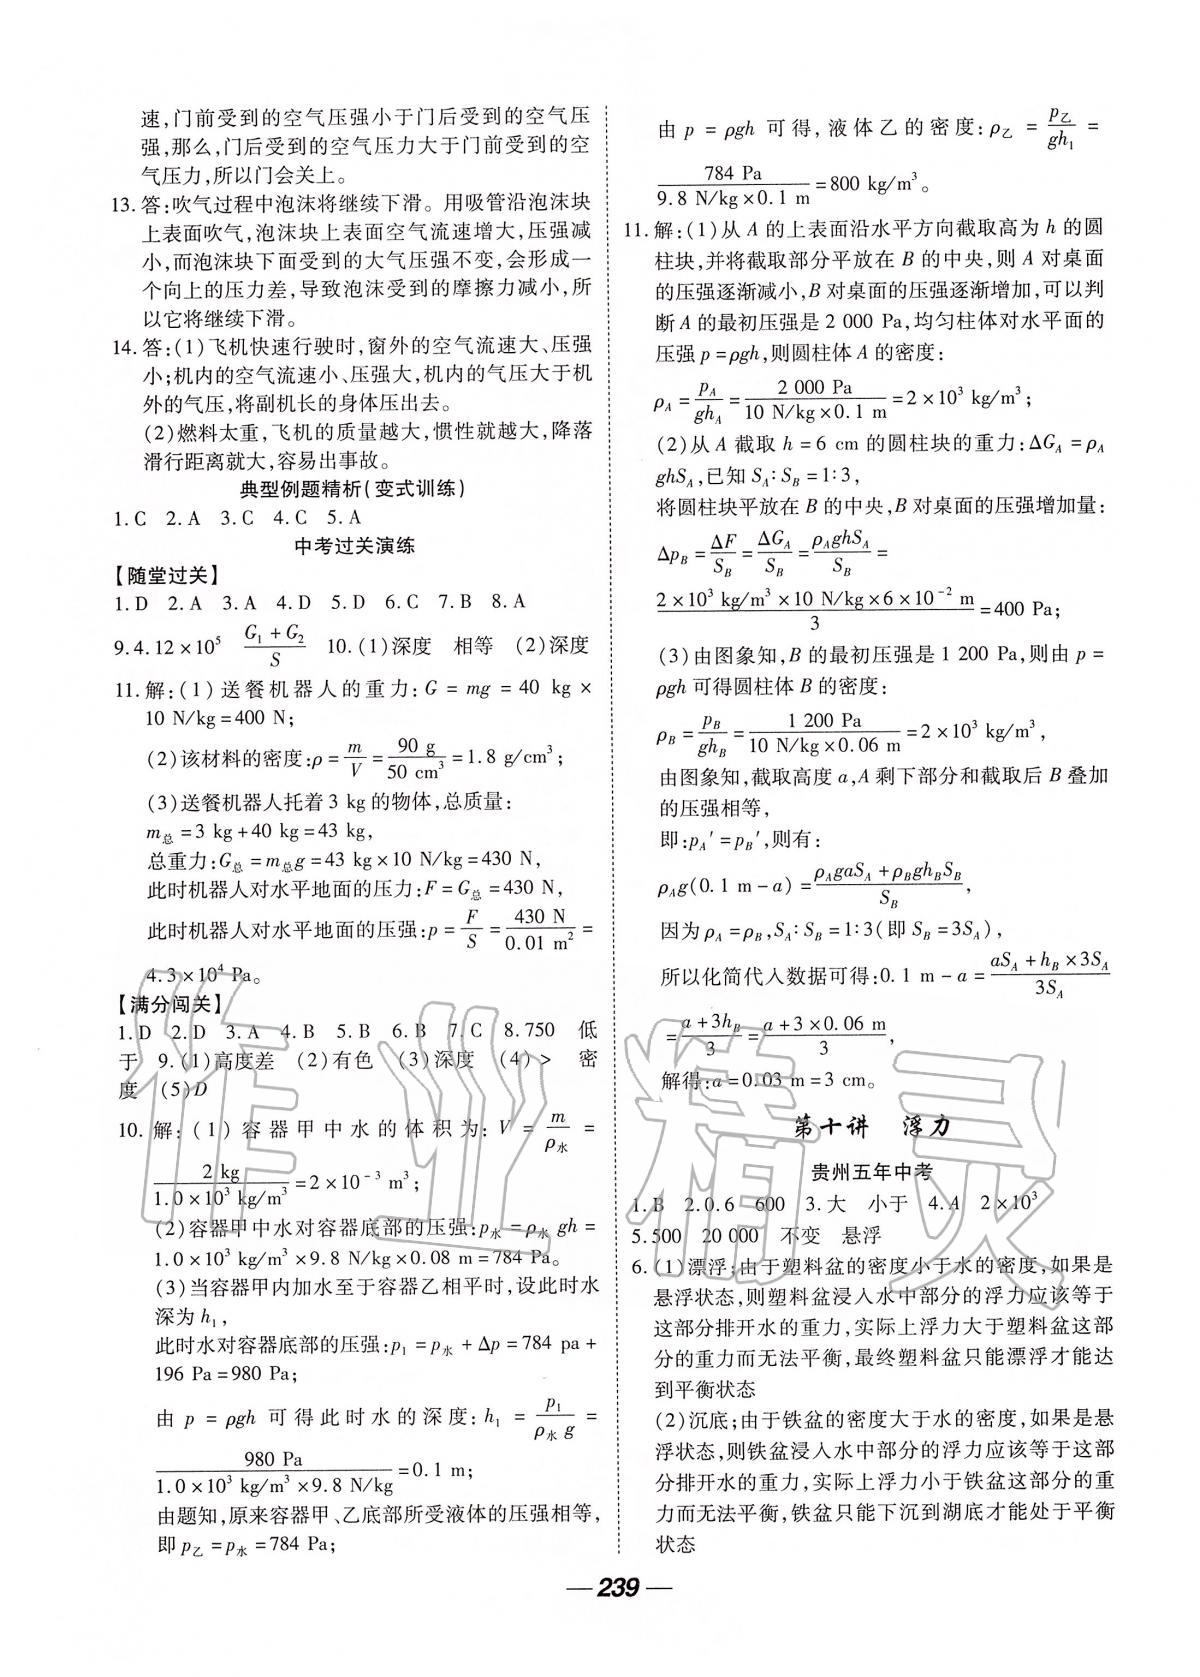 速,门前受到的空气压强小于门后受到的空气压
强,那么,门后受到的空气压力大于门前受到的空
气压力,所以门会关上。
13.答:吹气过程中泡沫将继续下滑。用吸管沿泡沫块
上表面吹气,泡沫块上表面空气流速增大,压强减
小,而泡沫块下面受到的大气压强不变,会形成一
个向上的压力差,导致泡沫受到的摩擦力减小,所
以它将继续下滑。
14.答:(1)飞机快速行驶时,窗外的空气流速大、压强
小;机内的空气流速小、压强大,机内的气压大于机
外的气压,将副机长的身体压出去。
(2)燃料太重,飞机的质量越大,惯性就越大,降落
滑行距离就大,容易出事故。
典型例题精析(变式训练)
1.C 2.A 3.C 4.C 5.A
中考过关演练
【随堂过关】
1.D 2.A 3.A 4.D 5.D 6.C 7.B 8.A
9.4.12×10⁵ (G₁+G₂)/S 10.(1)深度 相等 (2)深度
11.解:(1)送餐机器人的重力:G=mg=40 kg×
10 N/kg=400 N;
(2)该材料的密度:ρ=m/V=90 g/50 cm³=1.8 g/cm³;
(3)送餐机器人托着3 kg的物体,总质量:
m总=3 kg+40 kg=43 kg,
总重力:G总=m总g=43 kg×10 N/kg=430 N,
此时机器人对水平地面的压力:F=G总=430 N,
此时机器人对水平地面的压强:p=F/S=430 N/0.01 m²=
4.3×10⁴ Pa。
【满分闯关】
1.D 2.D 3.A 4.B 5.B 6.B 7.C 8.750 低
于 9.(1)高度差 (2)有色 (3)深度 (4)> 密
度 (5)D
10.解:(1)容器甲中水的体积为:V=m/ρ水=
2 kg/1.0×10³ kg/m³=2×10⁻³ m³;
(2)容器甲中水对容器底部的压强:p水=ρ水gh=
1.0×10³ kg/m³×9.8 N/kg×0.08 m=784 Pa。
(3)当容器甲内加水至于容器乙相平时,设此时水
深为h₁,
此时水对容器底部的压强:p₁=p水+Δp=784 pa+
196 Pa=980 Pa;
由p=ρgh可得此时水的深度:h₁=p₁/ρ水g=
980 Pa/1.0×10³ kg/m³×9.8 N/kg=0.1 m;
由题知,原来容器甲、乙底部所受液体的压强相等,
即p乙=p水=784 Pa;
由p=ρgh可得,液体乙的密度:ρ乙=p乙/gh₁=
784 Pa/9.8 N/kg×0.1 m=800 kg/m³。
11.解:(1)从A的上表面沿水平方向截取高为h的圆
柱块,并将截取部分平放在B的中央,则A对桌面
的压强逐渐减小,B对桌面的压强逐渐增加,可以判
断A的最初压强是2 000 Pa,均匀柱体对水平面的
压强p=ρgh,则圆柱体A的密度:
ρA=pA/ghA=2 000 Pa/10 N/kg×0.1 m=2×10³ kg/m³;
(2)从A截取h=6 cm的圆柱块的重力:ΔGA=ρA
ghSA,已知SA∶SB=1∶3,
将圆柱块平放在B的中央,B对桌面的压强增加量:
ΔpB=ΔF/SB=ΔGA/SB=ρAghSA/SB=
2×10³ kg/m³×10 N/kg×6×10⁻² m/3=400 Pa;
(3)由图象知,B的最初压强是1 200 Pa,则由p=
ρgh可得圆柱体B的密度:
ρB=pB/ghB=1 200 Pa/10 N/kg×0.06 m=2×10³ kg/m³,
由图象知,截取高度a,A剩下部分和截取后B叠加
的压强相等,
即:pA′=pB′,则有:
ρAg(0.1 m-a)=(ρAgaSA+ρBghBSB)/SB,
因为ρA=ρB,SA∶SB=1∶3(即SB=3SA),
所以化简代入数据可得:0.1 m-a=(aSA+hB×3SA)/3SA
=(a+3hB)/3=(a+3×0.06 m)/3,
解得:a=0.03 m=3 cm。
第十讲 浮力
贵州五年中考
1.B 2.0.6 600 3.大 小于 4.A 2×10³
5.500 20 000 不变 悬浮
6.(1)漂浮;由于塑料盆的密度小于水的密度,如果是
悬浮状态,则塑料盆浸入水中部分的浮力应该等于
这部分排开水的重力,实际上浮力大于塑料盆这部
分的重力而无法平衡,最终塑料盆只能漂浮才能达
到平衡状态
(2)沉底;由于铁盆的密度大于水的密度,如果是悬
浮状态,则铁盆浸入水中部分的浮力应该等于这部
分排开水的重力,实际上浮力小于铁盆这部分的重
力而无法平衡,铁盆只能下沉到湖底才能处于平衡
状态
— 239 —
作业精灵